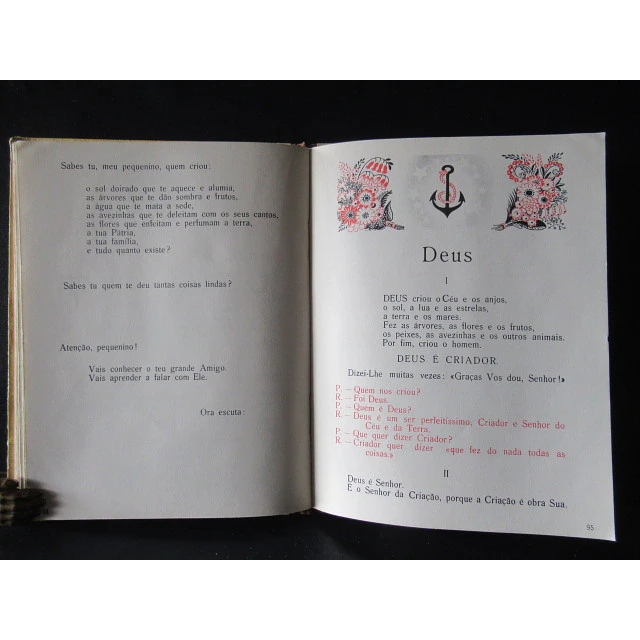 Sabes tu, meu pequenino, quem criou:
o sol doirado que te aquece e alumia,
as árvores que te dão sombra e frutos,
a água que te mata a sede,
as avezinhas que te deleitam com os seus cantos,
as flores que enfeitam e perfumam a terra,
a tua Pátria,
a tua família,
e tudo quanto existe?
Sabes tu quem te deu tantas coisas lindas?
Atenção, pequenino!
Vais conhecer o teu grande Amigo.
Vais aprender a falar com Ele.
Ora escuta:
Deus
I
DEUS criou o Céu e os anjos,
o sol, a lua e as estrelas,
a terra e os mares.
Fez as árvores, as flores e os frutos,
os peixes, as avezinhas e os outros animais.
Por fim, criou o homem.
DEUS É CRIADOR.
Dizei-Lhe muitas vezes: «Graças Vos dou, Senhor!»
P. — Quem nos criou?
R. — Foi Deus.
P. — Quem é Deus?
R. — Deus é um ser perfeitíssimo, Criador e Senhor do
Céu e da Terra.
P. — Que quer dizer Criador?
R. — Criador quer dizer «que fez do nada todas as
coisas.»
II
Deus é Senhor.
É o Senhor da Criação, porque a Criação é obra Sua.
95